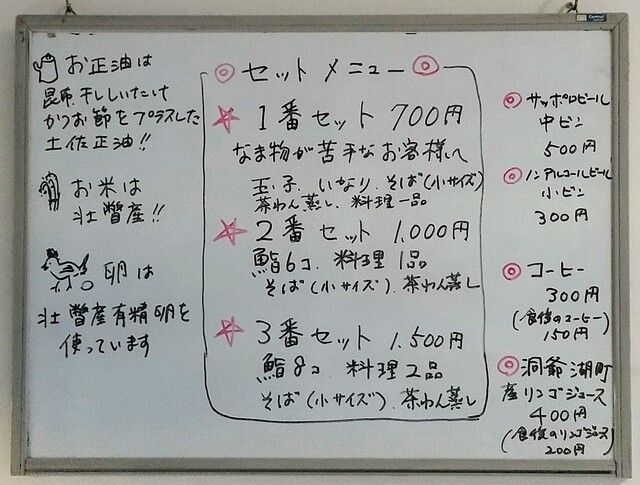 お正油は
昆布、干ししいたけ
かつお節をプラスした
土佐正油!!
お米は
壮瞥産!!
卵は
壮瞥産有精卵を
使っています
◎セットメニュー◎
☆1番セット 700円
なま物が苦手なお客様へ
玉子、いなり、そば(小サイズ)
茶わん蒸し、料理一品
☆2番セット 1,000円
鮨6コ、料理1品
そば(小サイズ)、茶わん蒸し
☆3番セット 1,500円
鮨8コ 料理2品
そば(小サイズ)、茶わん蒸し
◎サッポロビール
中ビン
500円
◎ノンアルコールビール
小ビン
300円
◎コーヒー
300円
(食後のコーヒー)
150円
◎洞爺湖町
産リンゴジュース
400円
(食後のリンゴジュース)
200円